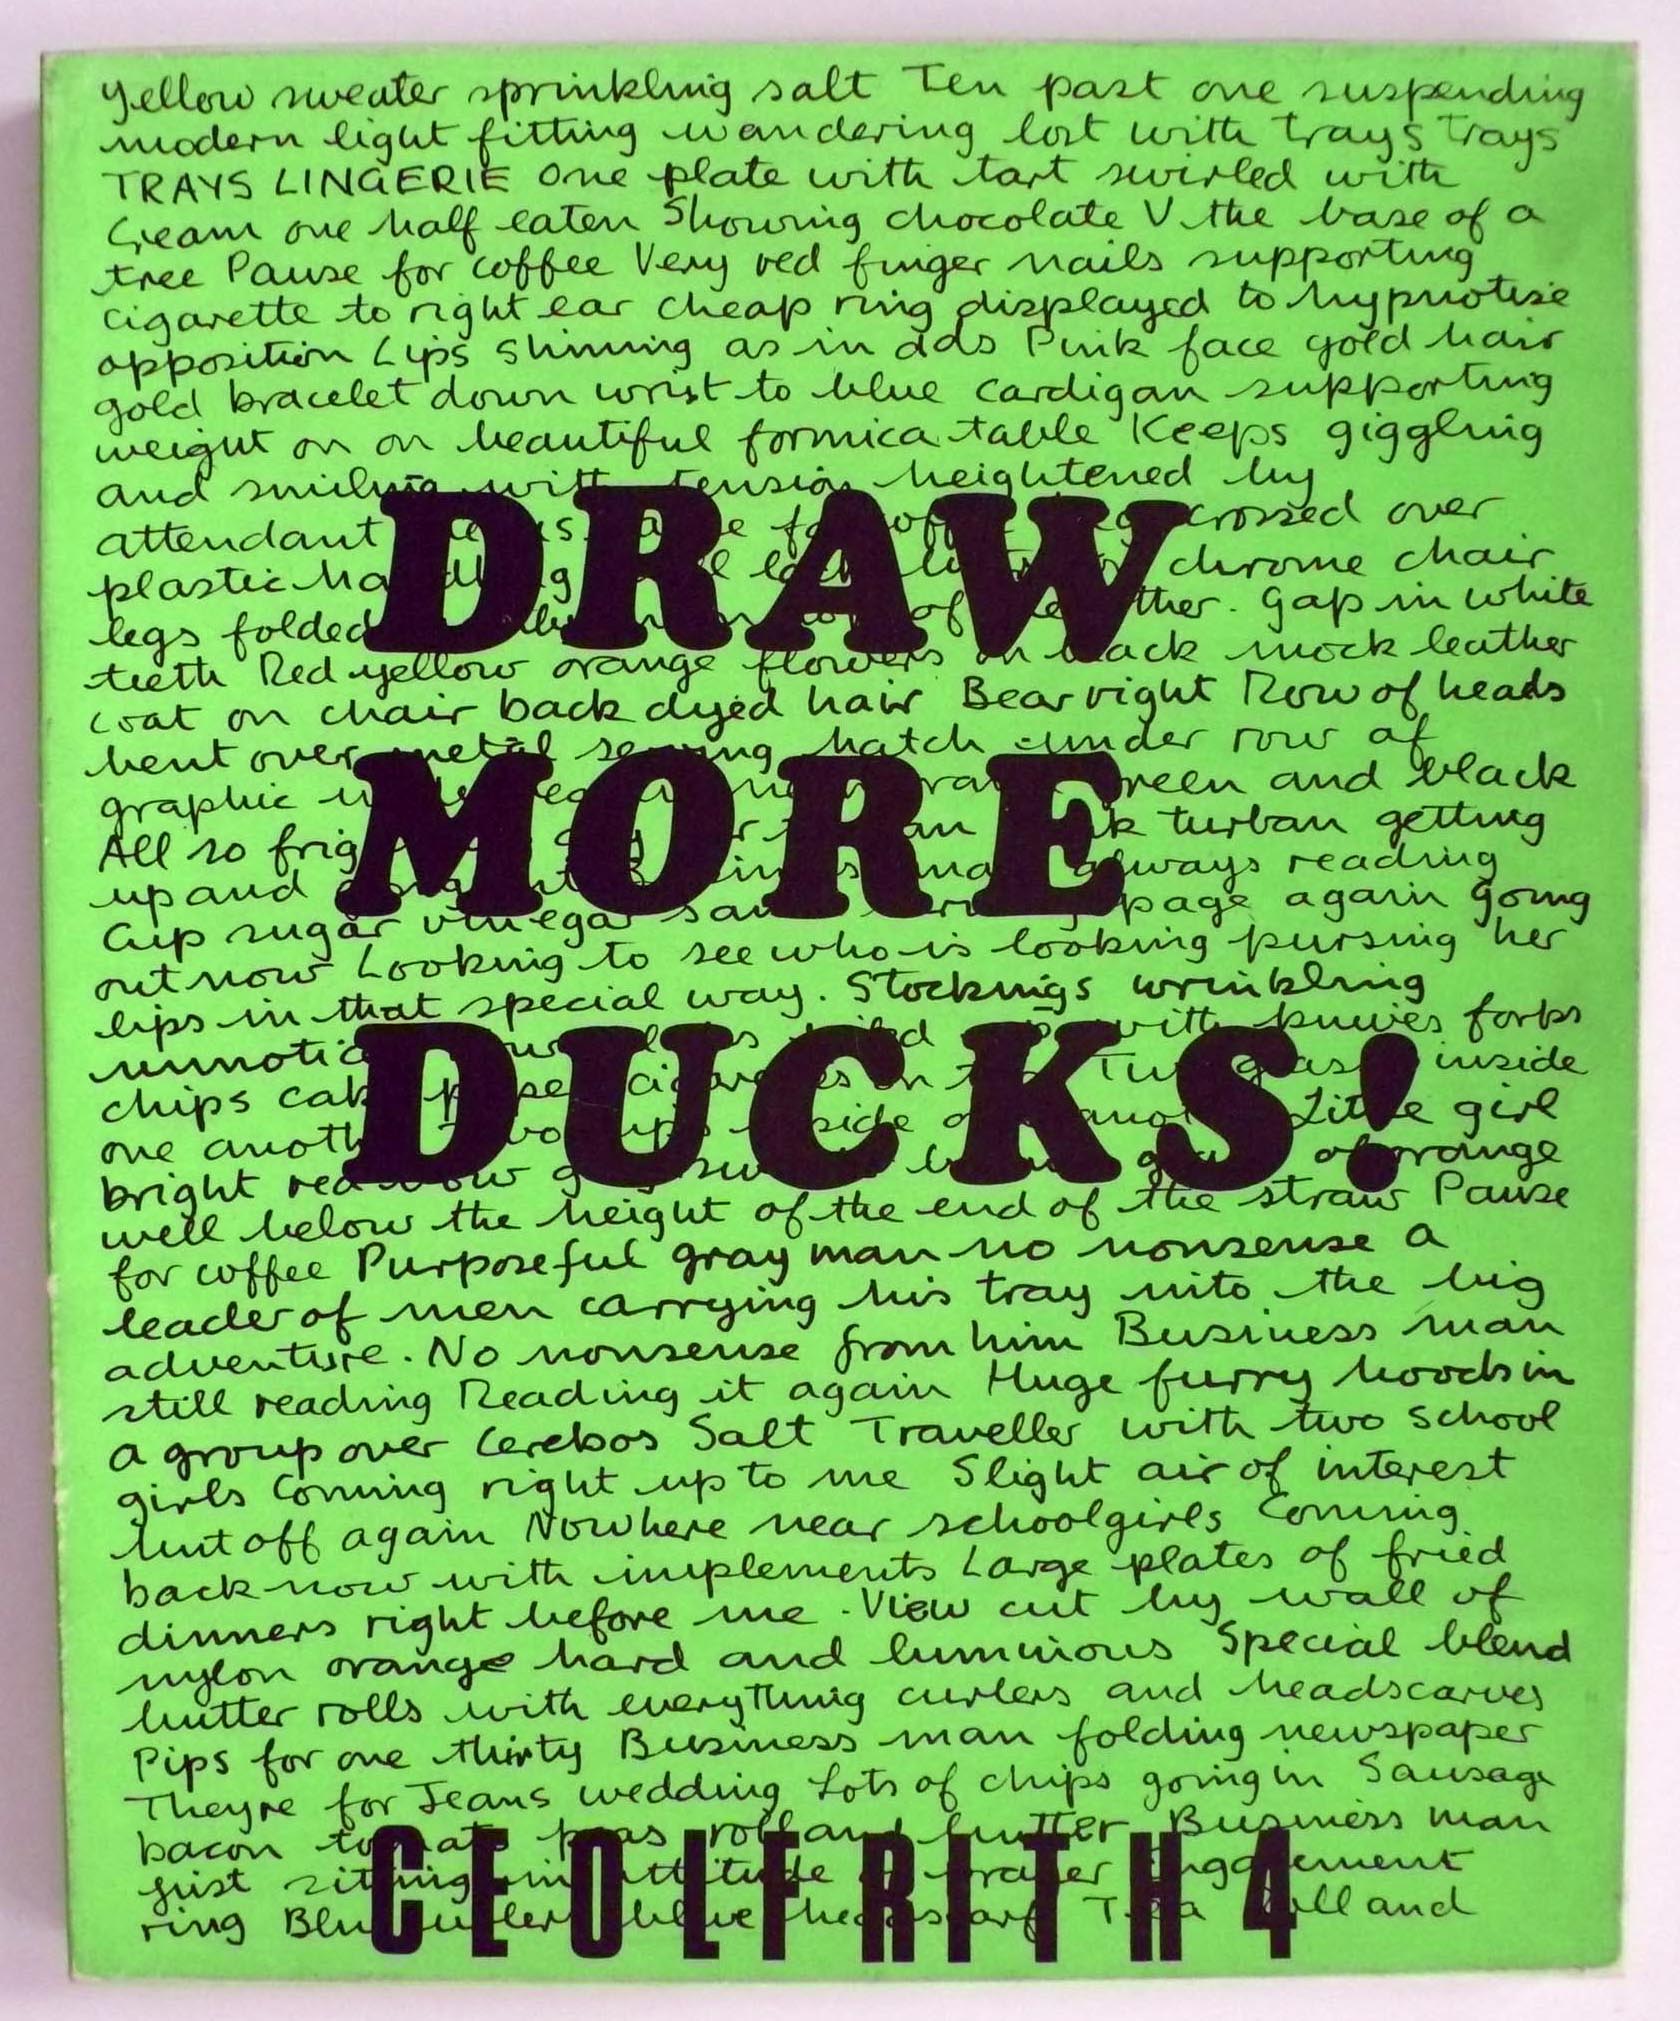 Yellow sweater sprinkling salt Ten past one suspending
modern light fitting wandering lost with trays Trays
TRAYS LINGERIE One plate with tart swirled with
Cream one half eaten Showing chocolate V the base of a
tree Pause for coffee Very red finger nails supporting
cigarette to right ear cheap ring displayed to hypnotise
opposition Lips shining as in ads Pink face gold hair
gold bracelet down wrist to blue cardigan supporting
weight on on beautiful formica table Keeps giggling
and smiling with tension heightened by
attendant crossed over
plastic chrome chair
legs folded of other. Gap in white
teeth Red yellow orange flowers on black mock leather
coat on chair back dyed hair Bear right Row of heads
bent over metal serving hatch under row of
graphic green and black
All so turban getting
up and always reading
Cup sugar vinegar page again Going
out now Looking to see who is looking pursing her
lips in that special way. Stockings wrinkling
with knives forks
chips inside
one Little girl
bright red of orange
well below the height of the end of the straw Pause
for coffee Purposeful gray man no nonsense a
leader of men carrying his tray into the big
adventure. No nonsense from him Business man
still reading Reading it again Huge furry hoods in
a group over Cerebos Salt Traveller with two school
girls Coming right up to me Slight air of interest
but off again Nowhere near schoolgirls Coming
back now with implements Large plates of fried
dinners right before me. View cut by wall of
nylon orange hard and luminous Special blend
butter rolls with everything curlers and headscarves
Pips for one thirty Business man folding newspaper
Theyre for Jeans wedding Lots of chips going in Sausage
bacon peas roll and butter Business man
just sitting in attitude prayer Engagement
ring blue headscarf Tea and
DRAW
MORE
DUCKS!
CEOLFRITH 4